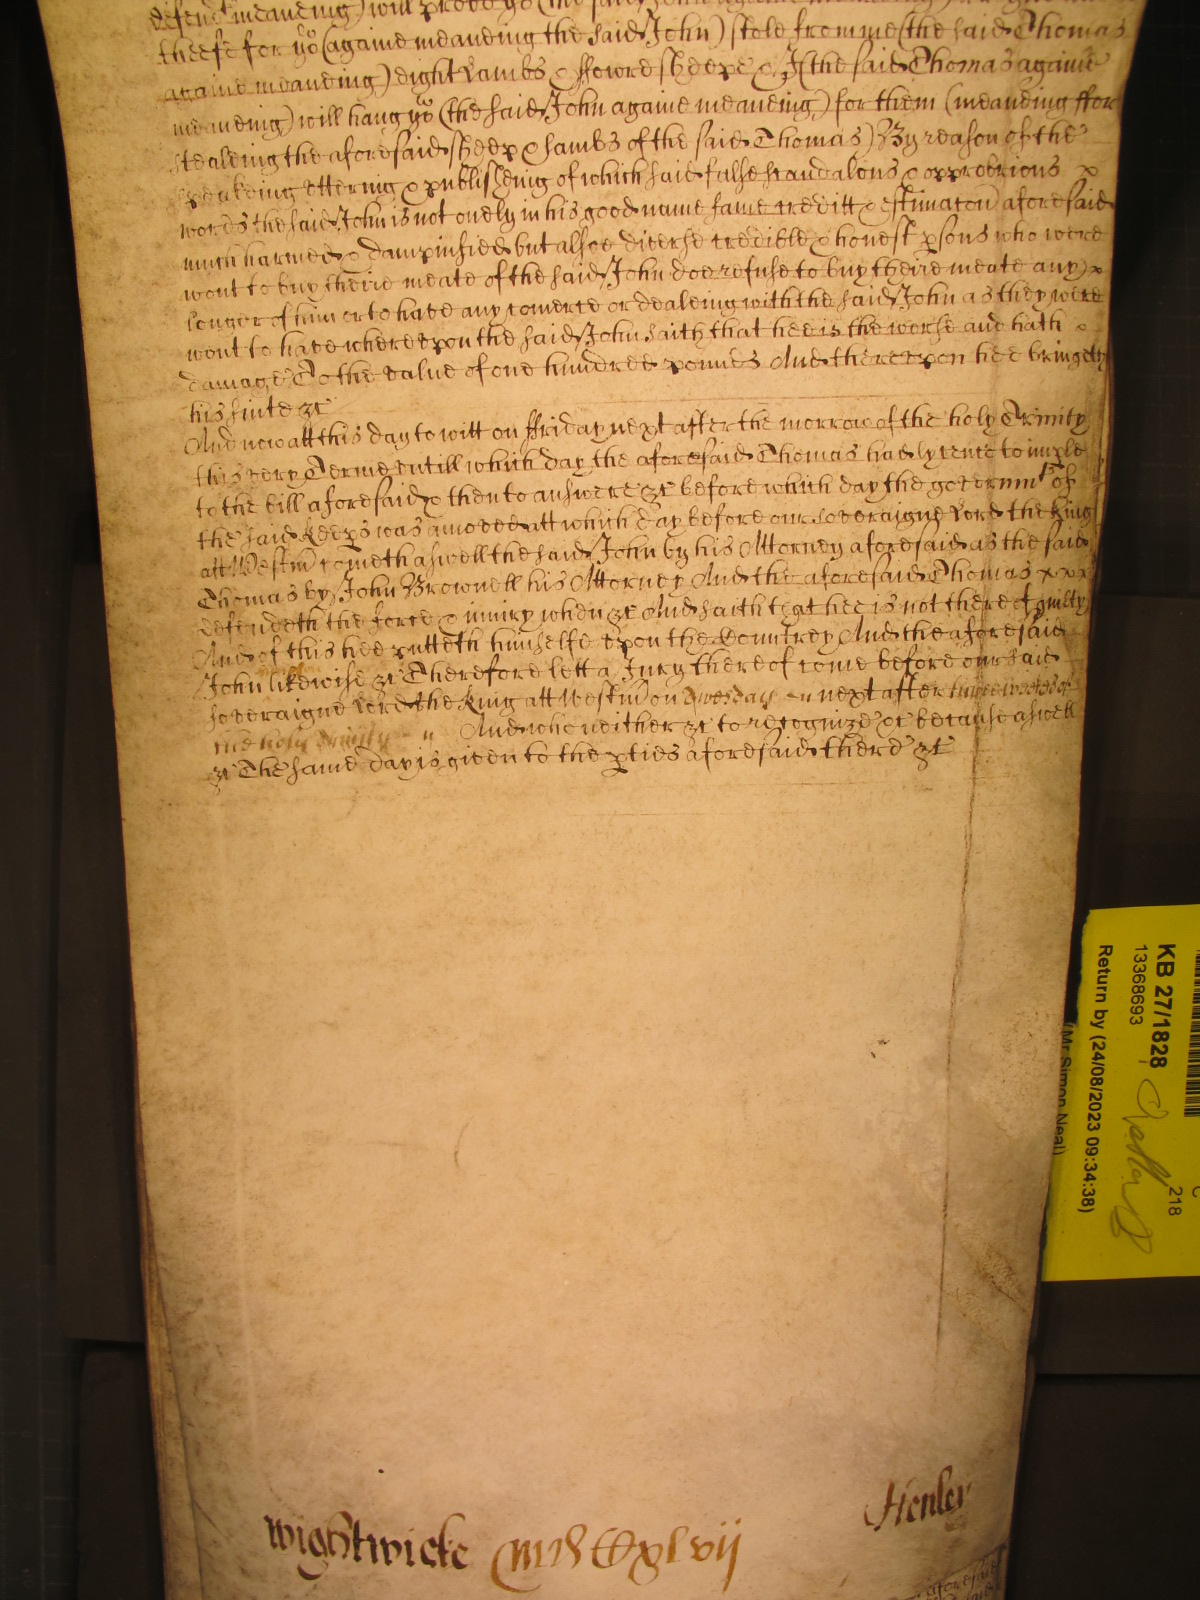 defend^t meaneing) will prove yo^u (the said John againe meaneing)
theefe for yo^u (againe meaneing the said John) stole from me (the said Thomas
againe meaneing) eight Lambs & ffowre sheepe & I (the said Thomas againe
meaneing) will hang yo^u (the said John againe meaneing) for them (meaneing ffor
stealeing the aforesaid sheep & Lambs of the said Thomas) By reason of the
speakeing uttering & publisheing of which said false scandalous & opprobrious
words the said John is not onely in his good name fame creditt & estimac͠on aforesaid
much harmed & dampnified but alsoe diverse credible & honest p̱sons who were
wont to buy theire meate of the said John doe refuse to buy theire meate any
longer of him or to have any comerce or dealeing with the said John as they were
wont to have whereupon the said John saith that hee is the worse and hath
damage To the value of one hundred pounds And thereupon hee bringeth
his suite &c
And now att this day to witt on ffriday next after the morrow of the holy Trinity
this very Terme untill which day the aforesaid Thomas had lycence to imple
to the bill aforesaid & then to answere &c before which day the governm^t of
the said Keeps was amoved att which day before our soveraigne Lord the King
att Westm̃ cometh aswell the said John by his Attorney aforesaid as the said
Thomas by John Brownell his Attorney And the aforesaid Thomas
defendeth the force & iniury when &c And saith that hee is not thereof guilty
And of this hee putteth himselfe upon the Countrey And the aforesaid
John likewise &c Therefore lett a Jury thereof come before our said
soveraigne Lord the King att Westm̃ on next after three weekes of
the holy Trinity And who neither &c to recognize &c because aswell
&c The same day is given to the p̱ties aforesaid there &c
wightwicke MDCCxlvii
Henley
KB 27/1828
13368693
Return by (24/08/2023 09:34:38)
(Mr Simon Neal)
218
C